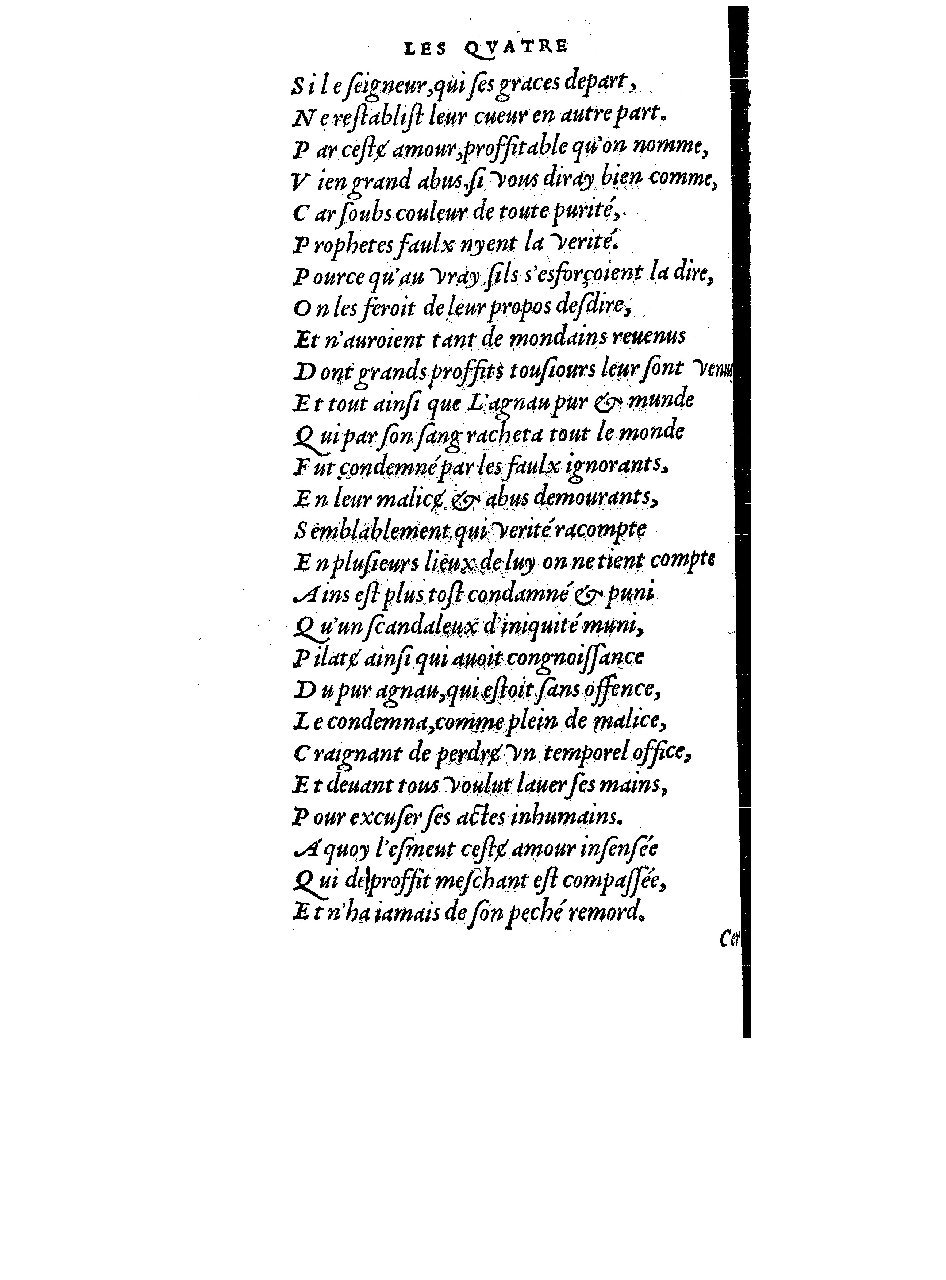 LES QVATRE
Si le ſeigneur, qui ſes graces depart,
Ne reſtabliſt leur cueur en autre part.
Par ceſtɇ amour, proffitable qu'on nomme,
Vien grand abus, ſi vous diray bien comme,
Car ſoubs couleur de toute purité,
Prophetes faulx nyent la verité.
Pource qu'au vray ſils s'esforçoient la dire,
On les feroit de leur propos deſdire,
Et n'auroient tant de mondains reuenus
Dont grands proffits touſiours leur ſont venu
Et tout ainſi que L'agnau pur & munde
Qui par ſon ſang racheta tout le monde
Fut condemné par les faulx ignorants,
En leur malicɇ & abus demourants,
Semblablement qui verité racompte
En pluſieurs lieux de luy on ne tient compte
Ains eſt plus toſt condamné & puni
Qu'un ſcandaleux d'iniquité muni,
Pilatɇ ainſi qui auoit congnoiſſance
Du pur agnau, qui eſtoit ſans offence,
Le condemna, comme plein de malice,
Craignant de perdrɇ vn temporel office,
Et deuant tous voulut lauer ſes mains,
Pour excuſer ſes actes inhumains.
A quoy l'eſmeut ceſtɇ amour inſenſée
Qui de proffit meſchant eſt compaſſée,
Et n'ha iamais de ſon peché remord.
Cet